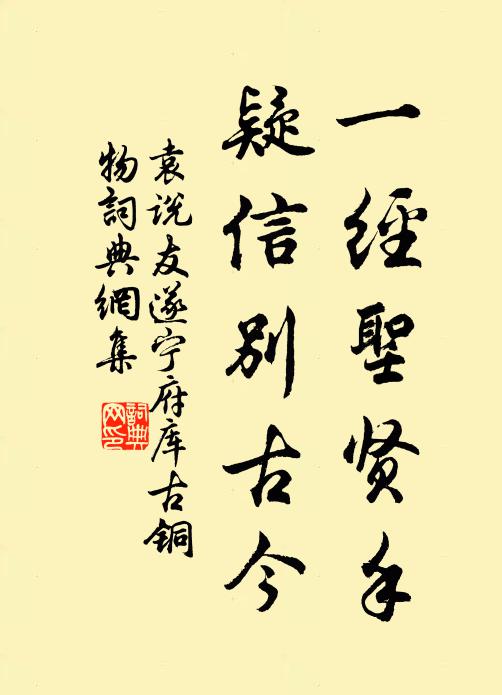 一經聖贤手
疑信别古今
袁说友遂宁府库古铜
物詞典網集
詞典
网印